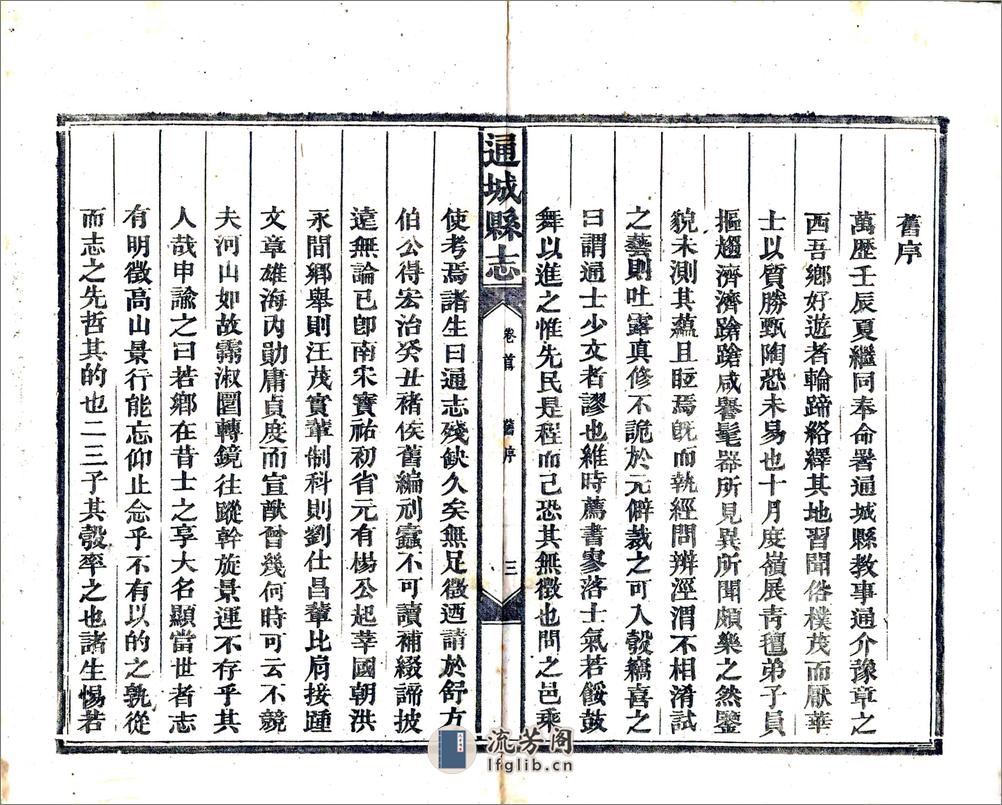 舊序
萬歷壬辰夏繼同奉命署通城縣教事通介豫章之
西吾鄉好遊者輪蹄絡繹其地習聞俗樸茂而厭華
士以質勝甄陶恐未易也十月度嶺展青氊弟子員
摳趨濟濟蹌蹌咸譽髦器所見異所聞頗樂之然鑒
貌未測其蘊且眐焉旣而執經問辨涇渭不相淆試
之藝則吐露真修不詭於元僻裁之可入彀竊喜之
曰謂通士少文者謬也維時薦書寥落士氣若餒鼓
舞以進之惟先民是程而己恐其無徵也問之邑乘
通城縣志
卷首
舊序
三
使考焉諸生曰通志殘缺久矣無足徵迺請於舒方
伯公得宏治癸丑褚侯舊編刓蠹不可讀補綴諦披
遠無論已卽南宋寶祐初省元有楊公起莘國朝洪
永間鄉舉則汪茂實輩制科則劉仕昌輩比肩接踵
文章雄海內勛庸貞度而宣猷曾幾何時可云不競
夫河山如故霱淑圜轉鏡往蹤幹旋景運不存乎其
人哉申諭之曰若鄉在昔士之享大名顯當世者志
有明徵高山景行能忘仰止念乎不有以的之孰從
而志之先哲其的也二三子其彀率之也諸生惕若
流芳閣
lfglib.cn